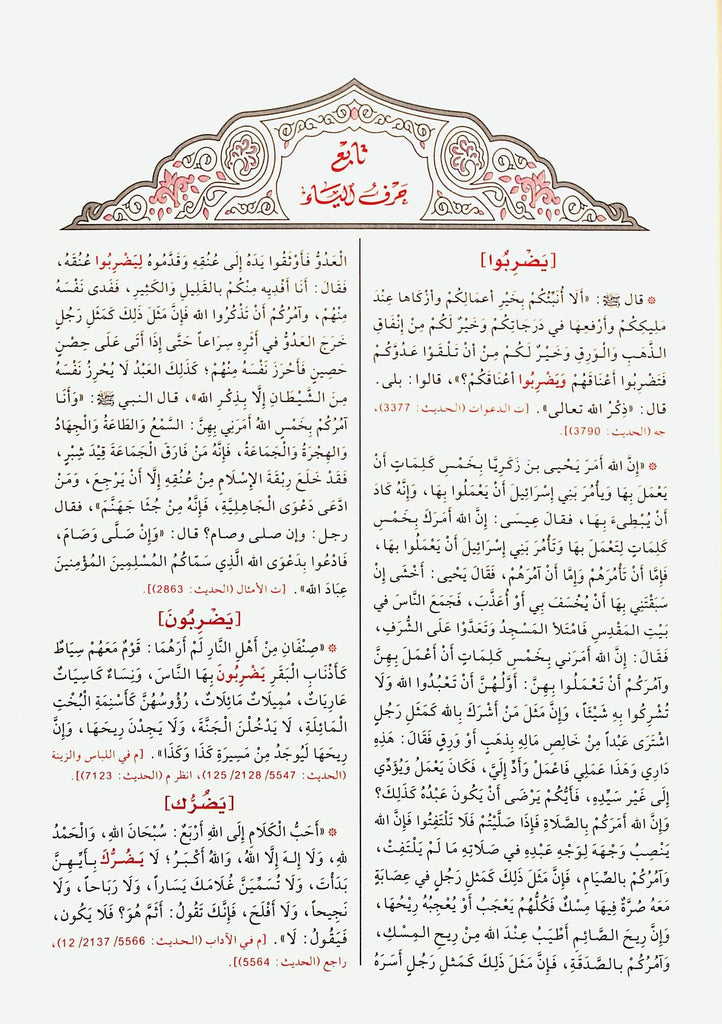 تابع
حَرفُ اليَاء
[يَضْرِبُوا]
* قال ﷺ: «أَلَا أُنَبِّئُكُمْ بِخَيْرِ أعمالِكُمْ وأزكاها عِنْدَ
مَلِيكِكُمْ وأرْفعِها في دَرَجاتِكُمْ وَخَيْرٌ لَكُمْ مِنْ إنْفَاقِ
الذَّهَبِ وَالْوَرِقِ وَخَيْرٌ لَكُمْ مِنْ أنْ تَلْقَوْا عَدُوَّكُمْ
فَتَضْرِبُوا أعْنَاقَهُمْ وَيَضْرِبُوا أعْنَاقَكُمْ؟»، قالوا: بلى.
قال: «ذِكْرُ الله تعالى». [ت الدعوات (الحديث: 3377)،
جه (الحديث: 3790)].
* «إنَّ الله أمَرَ يَحْيى بنَ زَكَرِيَّا بِخَمْسِ كَلِمَاتٍ أنْ
يَعْمَلَ بِهَا وَيأمُرَ بَنِي إسْرَائِيلَ أنْ يَعْمَلُوا بِهَا، وَإنَّهُ كَادَ
أنْ يُبْطِىءَ بِهَا، فقالَ عِيسى: إنَّ الله أمَرَكَ بِخَمْسِ
كَلِمَاتٍ لِتَعْمَلَ بهَا وَتَأْمُرَ بَنِي إسْرَائِيلَ أنْ يَعْمَلُوا بهَا،
فَإمَّا أنْ تَأمُرَهُمْ وَإمَّا أنْ آمُرَهُمْ، فَقَالَ يَحْيى: أخْشَى إنْ
سَبَقْتَنِي بِهَا أنْ يُخْسَفَ بِي أوْ أُعَذَّبَ، فَجَمَعَ النَّاسَ في
بَيْتِ المَقْدِسِ فَامْتَلأَ المَسْجِدُ وَتَعَدَّوْا عَلَى الشُّرَفِ،
فَقَالَ: إنَّ الله أمَرَني بِخَمْسِ كَلِمَاتٍ أنْ أعْمَلَ بِهِنَّ
وآمُرَكُمْ أنْ تَعْمَلُوا بِهِنَّ: أوَّلُهُنَّ أنْ تَعْبُدُوا الله وَلَا
تُشْرِكُوا بِهِ شَيْئاً، وَإنَّ مَثَلَ مَنْ أشْرَكَ بالله كَمَثَلِ رَجُلٍ
اشْتَرَى عَبْداً مِنْ خالِصِ مَالِهِ بِذهَبٍ أوْ وَرِقٍ فَقَالَ: هَذِهِ
دَارِي وَهَذَا عَمَلِي فَاعْمَلْ وَأدِّ إلَيَّ، فَكَانَ يَعْمَلُ وَيُؤَدِّي
إلَى غَيْرِ سَيِّدِهِ، فَأيُّكُمْ يَرْضَى أنْ يَكُونَ عَبْدُهُ كَذَلِكَ؟
وَإنَّ الله أمَرَكُمْ بِالصَّلَاةِ فَإذَا صَلَّيْتُمْ فَلَا تَلْتَفِتُوا فَإنَّ الله
يَنْصِبُ وَجْهَهُ لِوَجْهِ عَبْدِهِ في صَلَاتِهِ مَا لَمْ يَلْتَفِتْ،
وَآمُرُكُمْ بالصِّيَامِ، فَإنَّ مَثَلَ ذَلِكَ كَمَثلِ رَجُلٍ في عِصَابَةٍ
مَعَهُ صُرَّةٌ فِيهَا مِسْكٌ فَكُلُّهُمْ يَعْجَبُ أوْ يُعْجِبُهُ رِيْحُهَا،
وَإنَّ رِيحَ الصَّائِمِ أطْيَبُ عِنْدَ الله مِنْ رِيحِ المِسْكِ،
وَآمُرُكُمْ بالصَّدَقَةِ، فَإنَّ مَثَلَ ذَلِكَ كَمَثلِ رَجُلٍ أسَرَهُ
الْعَدُوُّ فَأوْثَقُوا يَدَهُ إلَى عُنُقِهِ وَقَدَّمُوهُ لِيَضْرِبُوا عُنُقَهُ،
فَقَالَ: أنَا أفْدِيهِ مِنْكُمْ بالقَلِيلِ وَالكَثِيرِ، فَفَدى نَفْسَهُ
مِنْهُمْ، وآمُرُكُمْ أنْ تَذْكُرُوا الله فَإنَّ مَثَلَ ذَلِكَ كَمَثَلِ رَجُلٍ
خَرَجَ العَدُوُّ في أثَرِهِ سِرَاعاً حَتَّى إذَا أتَى عَلَى حِصْنٍ
حَصِينٍ فَأحْرَزَ نَفْسَهُ مِنْهُمْ؛ كَذَلِكَ العَبْدُ لَا يُحْرِزُ نَفْسَهُ
مِنَ الشَّيْطَانِ إلَّا بِذِكْرِ الله»، قال النبي ﷺ: «وَأنَا
آمُرُكُمْ بِخَمْسٍ الله أمَرَنِي بِهِنَّ: السَّمْعُ وَالطَّاعَةُ وَالْجِهَادُ
وَالهِجْرَةُ وَالْجَمَاعَةُ، فَإنَّهُ مَنْ فَارَقَ الْجَمَاعَةَ قِيْدَ شِبْرٍ،
فَقَدْ خَلَعَ رِبْقَةَ الإسْلَامِ مِنْ عُنُقِهِ إلَّا أنْ يَرْجِعَ، وَمَنْ
ادَّعَى دَعْوَى الْجَاهِلِيَّةِ، فَإنَّهُ مِنْ جُثَا جَهَنَّمَ»، فقال
رجل: وإن صلى وصام؟ قال: «وَإنْ صَلَّى وَصَامَ،
فَادْعُوا بِدَعْوَى الله الَّذِي سَمَّاكُمُ المُسْلِمِينَ المُؤْمِنِينَ
عِبَادَ الله». [ت الأمثال (الحديث: 2863)].
[يَضْرِبُونَ]
* «صِنْفَانِ مِنْ أهْلِ النَّارِ لَمْ أرَهُمَا: قَوْمٌ مَعَهُمْ سِيَاطٌ
كَأذْنَابِ الْبَقَرِ يَضْرِبُونَ بِهَا النَّاسَ، وَنِسَاءٌ كَاسِيَاتٌ
عَارِيَاتٌ، مُمِيلَاتٌ مَائِلَاتٌ، رُؤُوسُهُنَّ كَأسْنِمَةِ الْبُخْتِ
الْمَائِلَةِ، لَا يَدْخُلْنَ الْجَنَّةَ، وَلَا يَجِدْنَ رِيحَهَا، وَإنَّ
رِيحَهَا لَيُوجَدُ مِنْ مَسِيرَةِ كَذَا وَكَذَا». [م في اللباس والزينة
(الحديث: 5547/ 2128/ 125)، انظر م (الحديث: 7123)].
[يَضُرُّك]
* «أَحَبُّ الْكَلَامِ إلَى اللهِ أرْبَعٌ: سُبْحَانَ اللهِ، وَالْحَمْدُ
للهِ، وَلَا إلهَ إلَّا اللهُ، وَاللهُ أكْبَرُ؛ لَا يَضُرُّكَ بِأيِّهِنَّ
بَدَأْتَ، وَلَا تُسَمِّيَنَّ غُلَامَكَ يَسَاراً، وَلَا رَبَاحاً، وَلَا
نَجِيحاً، وَلَا أفْلَحَ، فَإنَّكَ تَقُولُ: أثَمَّ هُوَ؟ فَلَا يَكُونُ،
فَيَقُولُ: لَا». [م في الآداب (الحديث: 5566/ 2137/ 12)،
راجع (الحديث: 5564)].